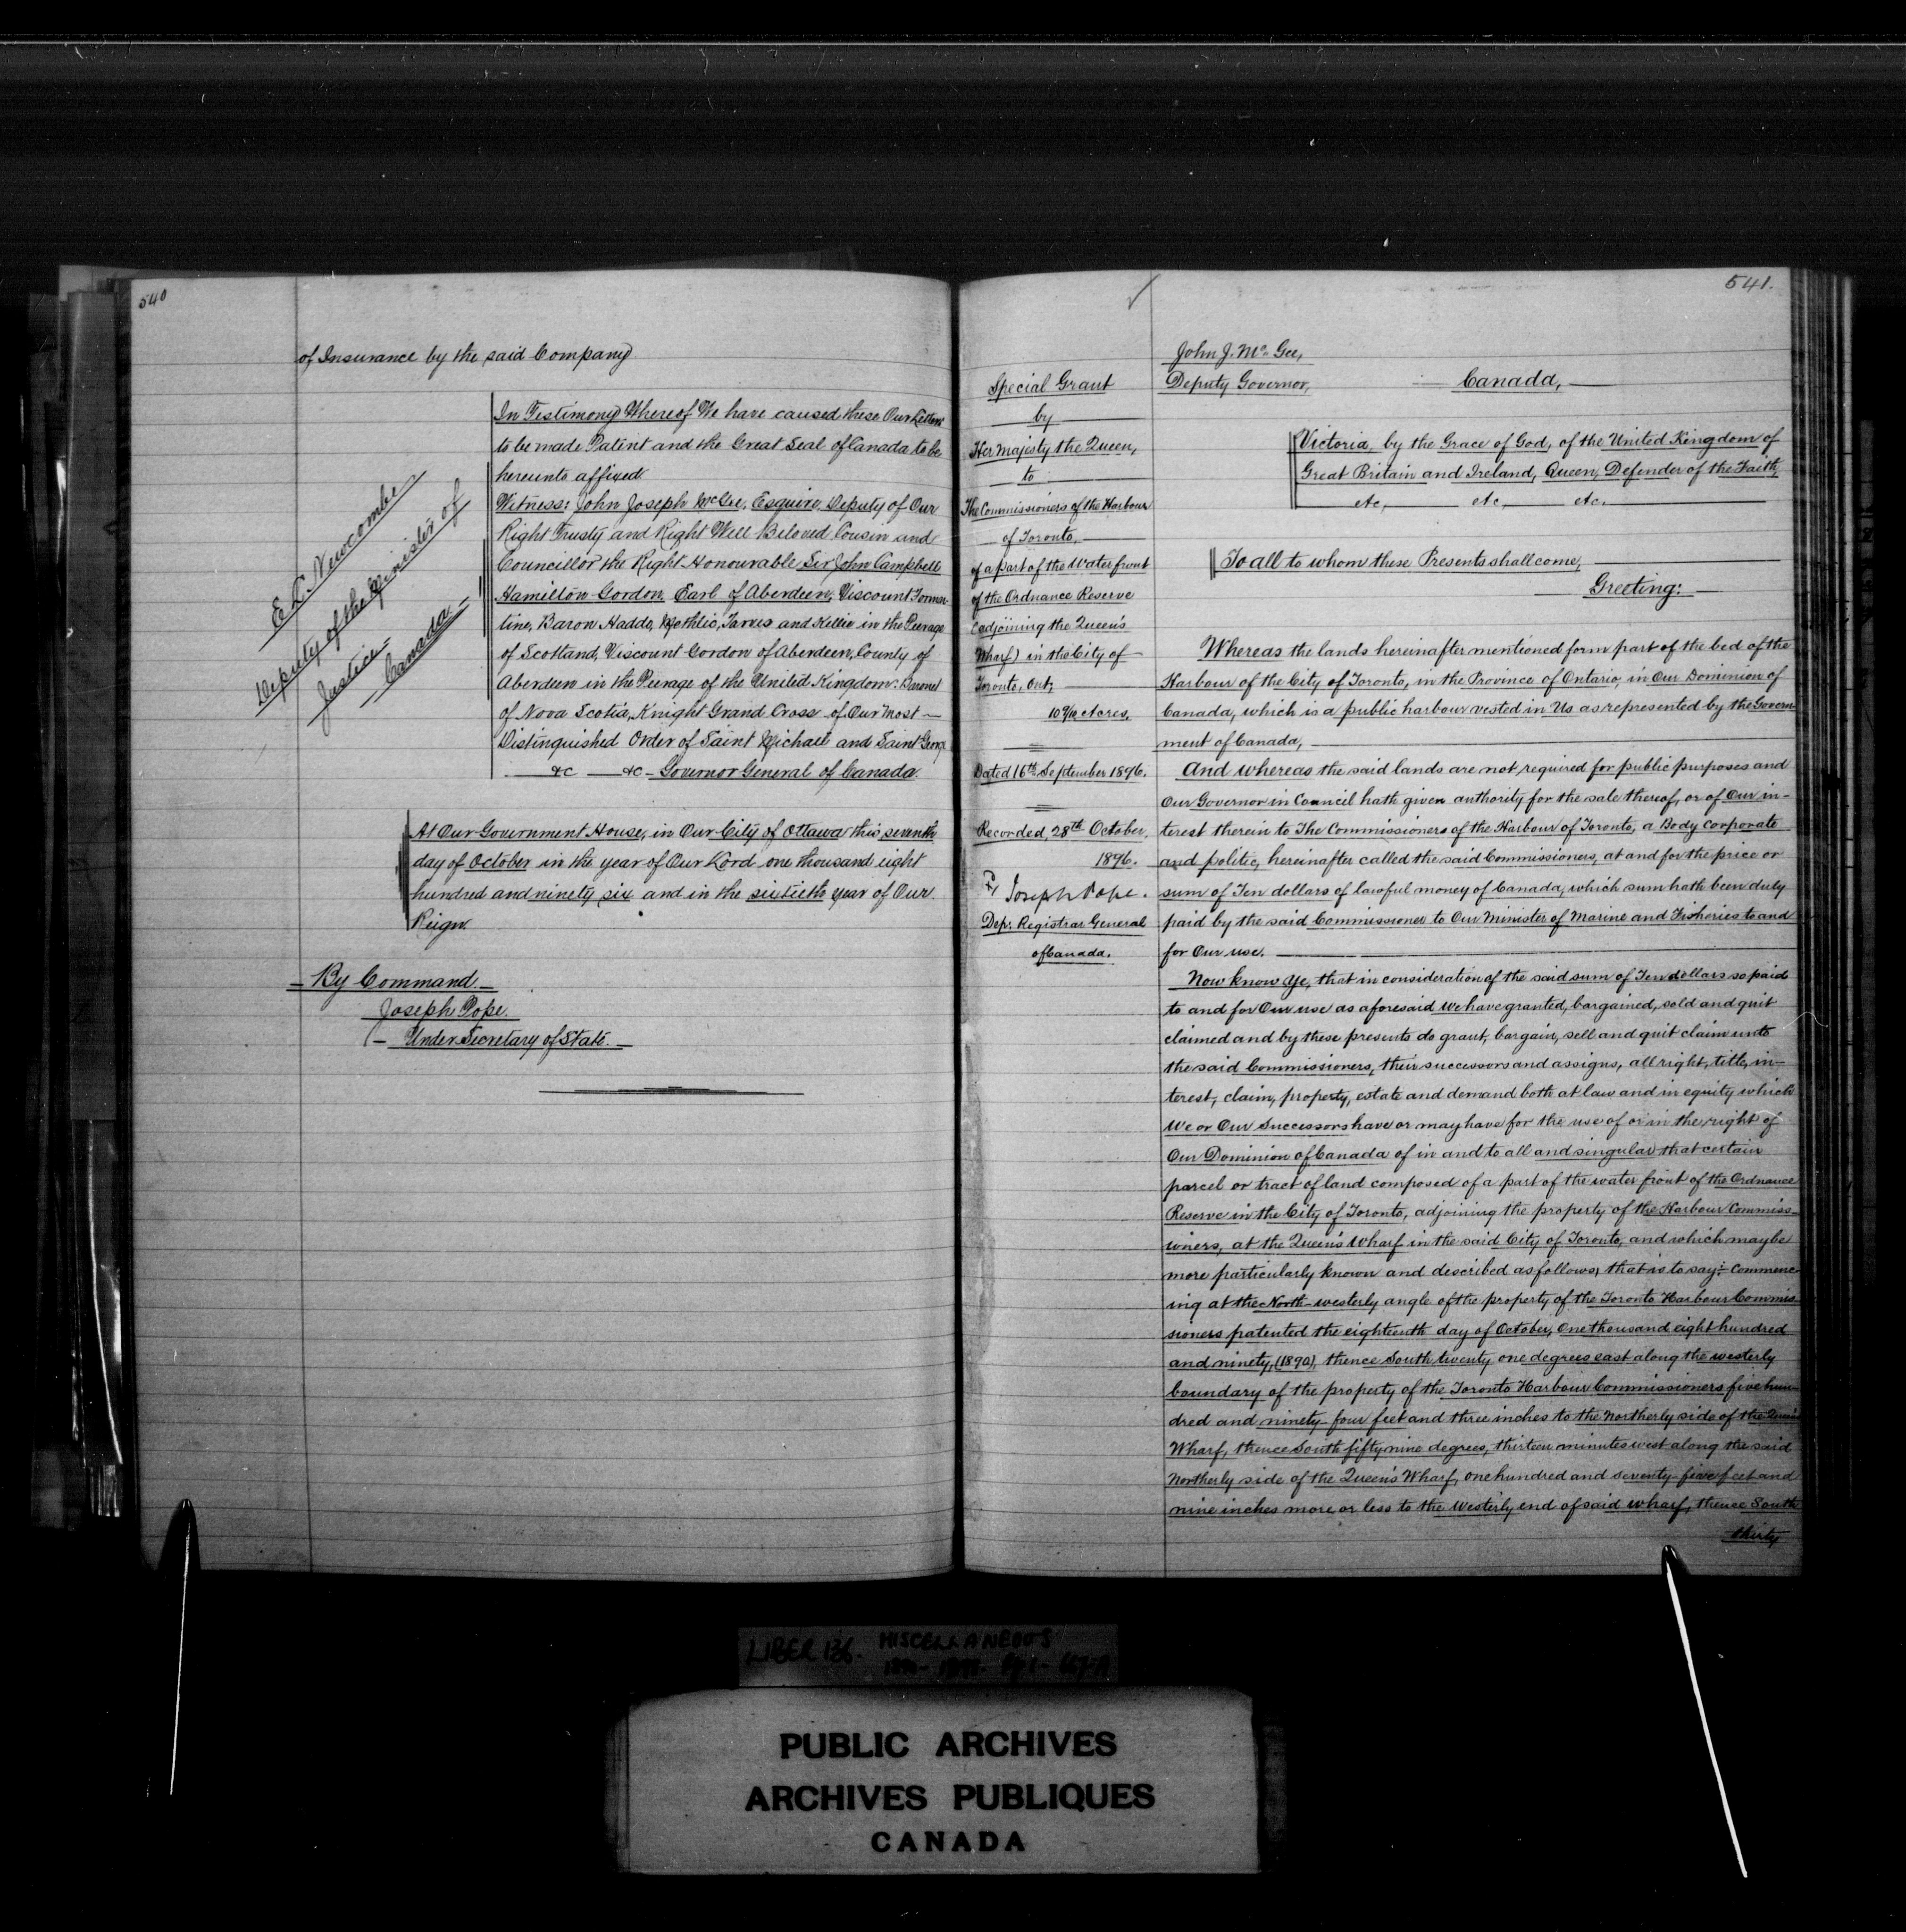 540
of Insurance by the said Company
In Testimony Whereof We have caused these Our Letters
to be made Patent and the Great Seal of Canada to be
hereunto affixed
Witness: John Joseph McGee, Esquire, Deputy of Our
Right Trusty and Right Well Beloved Cousin and
Councillor the Right Honourable Sir John Campbell
Hamilton-Gordon, Earl of Aberdeen, Viscount Formar-
tine, Baron Haddo, Methlic, Tarves and Kellie in the Peerage
of Scotland, Viscount Gordon of Aberdeen, County of
Aberdeen in the Peerage of the United Kingdom: Baronet
of Nova Scotia, Knight Grand Cross of Our Most
Distinguished Order of Saint Michael and Saint George
&c &c - Governor General of Canada.
E. L. Newcombe
Deputy of the Minister of
Justice
Canada
At Our Government House, in Our City of Ottawa this seventh
day of October in the year of Our Lord one thousand eight
hundred and ninety six and in the sixtieth year of Our
Reign.
By Command
Joseph Pope.
Under Secretary of State.
541.
Special Grant
by
Her Majesty the Queen,
to
The Commissioners of the Harbour
of Toronto,
of a part of the Water front
of the Ordnance Reserve
(adjoining the Queen's
Wharf) in the City of
Toronto, Ont;
Acres.
Dated 16th September 1896.
Recorded, 28th October,
1896.
Joseph Pope.
Dep: Registrar General
of Canada.
John J. Mc Gee,
Deputy Governor,
Canada,
Victoria, by the Grace of God, of the United Kingdom of
Great Britain and Ireland, Queen, Defender of the Faith,
etc, etc, etc.
To all to whom these Presents shall come,
Greeting:
Whereas the lands hereinafter mentioned form part of the bed of the
Harbour of the City of Toronto, in the Province of Ontario, in Our Dominion of
Canada, which is a public harbour vested in Us as represented by the Govern-
ment of Canada,
And whereas the said lands are not required for public purposes and
Our Governor in Council hath given authority for the sale thereof, or of Our in-
terest therein to The Commissioners of the Harbour of Toronto, a Body corporate
and politic, hereinafter called the said Commissioners, at and for the price or
sum of Ten dollars of lawful money of Canada, which sum hath been duly
paid by the said Commissioner to Our Minister of Marine and Fisheries to and
for Our use.
Now know Ye, that in consideration of the said sum of Ten dollars so paid
to and for Our use as aforesaid we have granted, bargained, sold and quit
claimed and by these presents do grant, bargain, sell and quit claim unto
the said Commissioners, their successors and assigns, all right, title, in-
terest, claim, property, estate and demand both at law and in equity which
We or Our Successors have or may have for the use of or in the right of
Our Dominion of Canada of in and to all and singular that certain
parcel or tract of land composed of a part of the water front of the Ordnance
Reserve in the City of Toronto, adjoining the property of the Harbour Commiss-
ioners, at the Queen's Wharf in the said City of Toronto, and which may be
more particularly known and described as follows, that is to say: Commenc-
ing at the North-westerly angle of the property of the Toronto Harbour Commis-
sioners patented the eighteenth day of October, One thousand eight hundred
and ninety, (1890), thence South twenty one degrees east along the westerly
boundary of the property of the Toronto Harbour Commissioners five hun-
dred and ninety-four feet and three inches to the Northerly side of the Queen's
Wharf, thence South fifty nine degrees, thirteen minutes west along the said
Northerly side of the Queen's Wharf, one hundred and seventy-five feet and
nine inches more or less to the westerly end of said wharf, thence South
thirty
LIBER 136. MISCELLANEOUS
PUBLIC ARCHIVES
ARCHIVES PUBLIQUES
CANADA